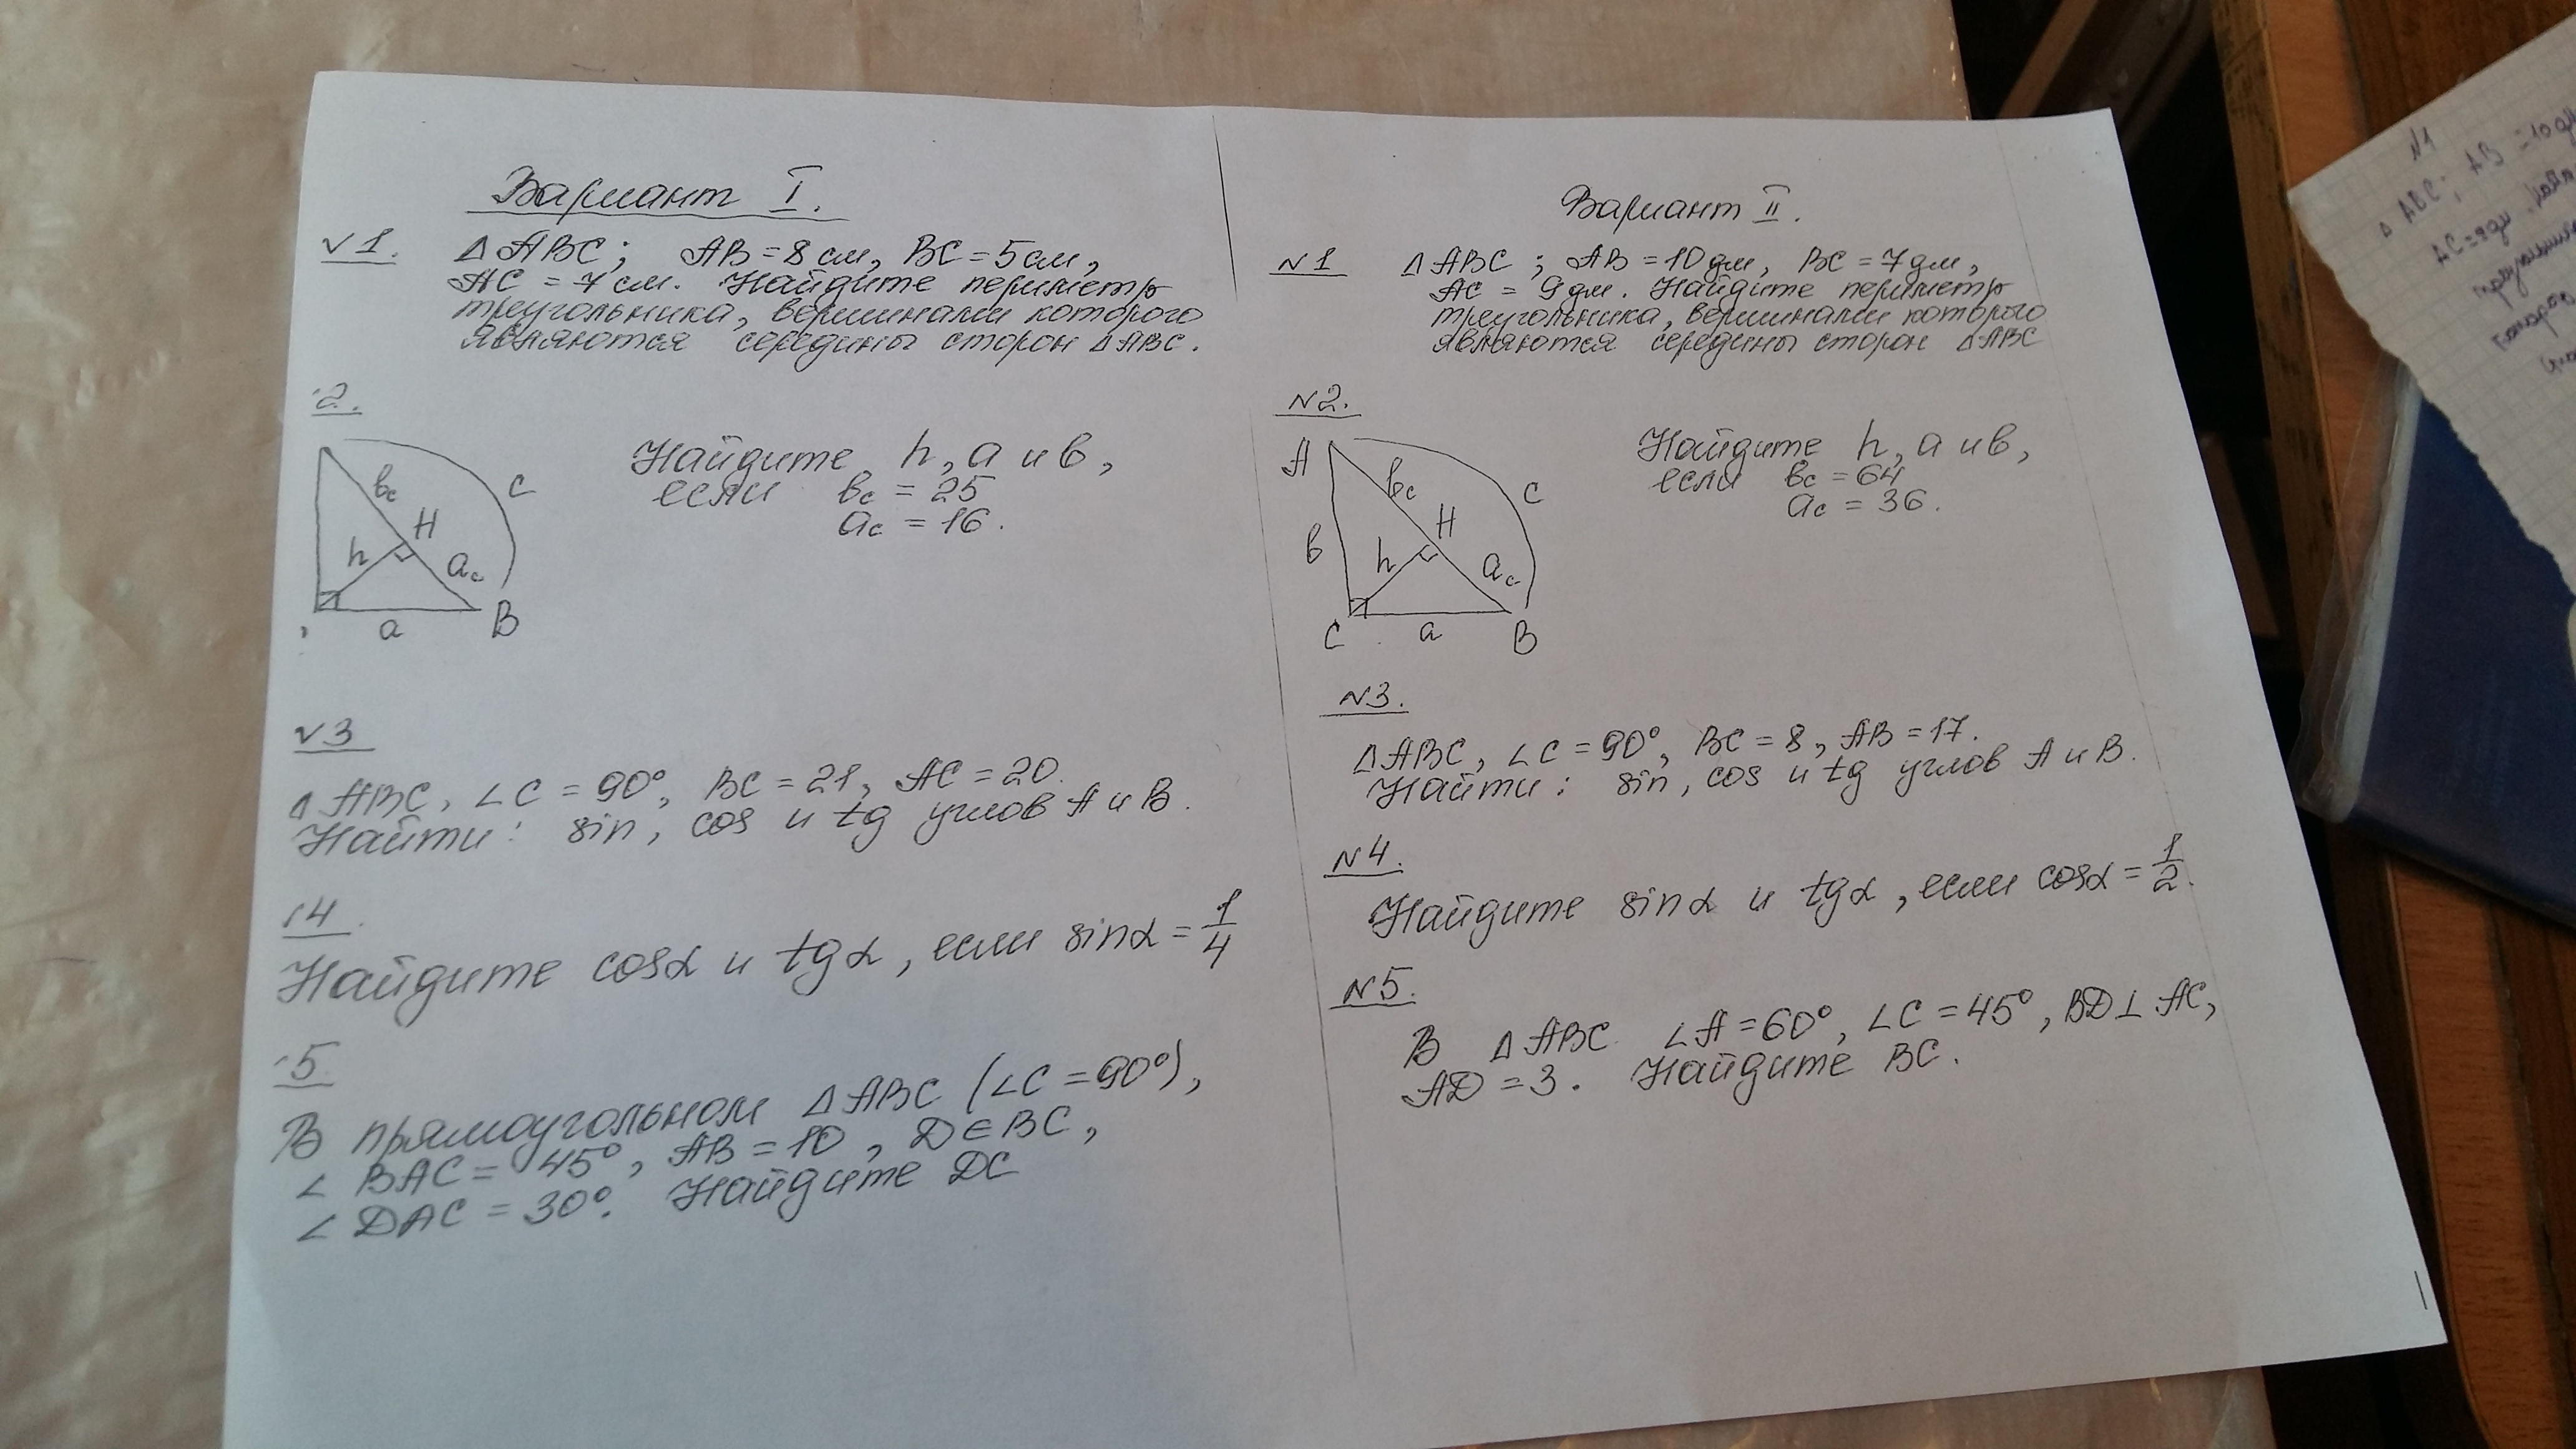 Вариант I.
√1. Δ ABC; AB = 8 см, BC = 5 см,
AC = 7 см. Найдите периметр
треугольника, вершинами которого
являются середины сторон Δ ABC.
2.
bc
C
H
h
ac
a
B
Найдите h, a и b,
если bc = 25
ac = 16.
√3
Δ ABC, ∠C = 90°, BC = 21, AC = 20.
Найти: sin, cos и tg углов A и B.
4.
Найдите cosα и tgα, если sinα = 1/4
5.
В прямоугольном Δ ABC (∠C = 90°),
∠ BAC = 45°, AB = 10, D ∈ BC,
∠ DAC = 30°. Найдите DC
Вариант II.
N1 Δ ABC; AB = 10 дм, BC = 7 дм,
AC = 9 дм. Найдите периметр
треугольника, вершинами которого
являются середины сторон Δ ABC
N2.
A
bc
C
H
b
h
ac
C
a
B
Найдите h, a и b,
если bc = 64
ac = 36.
N3.
Δ ABC, ∠C = 90°, BC = 8, AB = 17.
Найти: sin, cos и tg углов A и B.
N4.
Найдите sinα и tgα, если cosα = 1/2.
N5.
В Δ ABC ∠A = 60°, ∠C = 45°, BD ⊥ AC,
AD = 3. Найдите BC.
N1
Δ ABC; AB = 10
AC = 9 дм